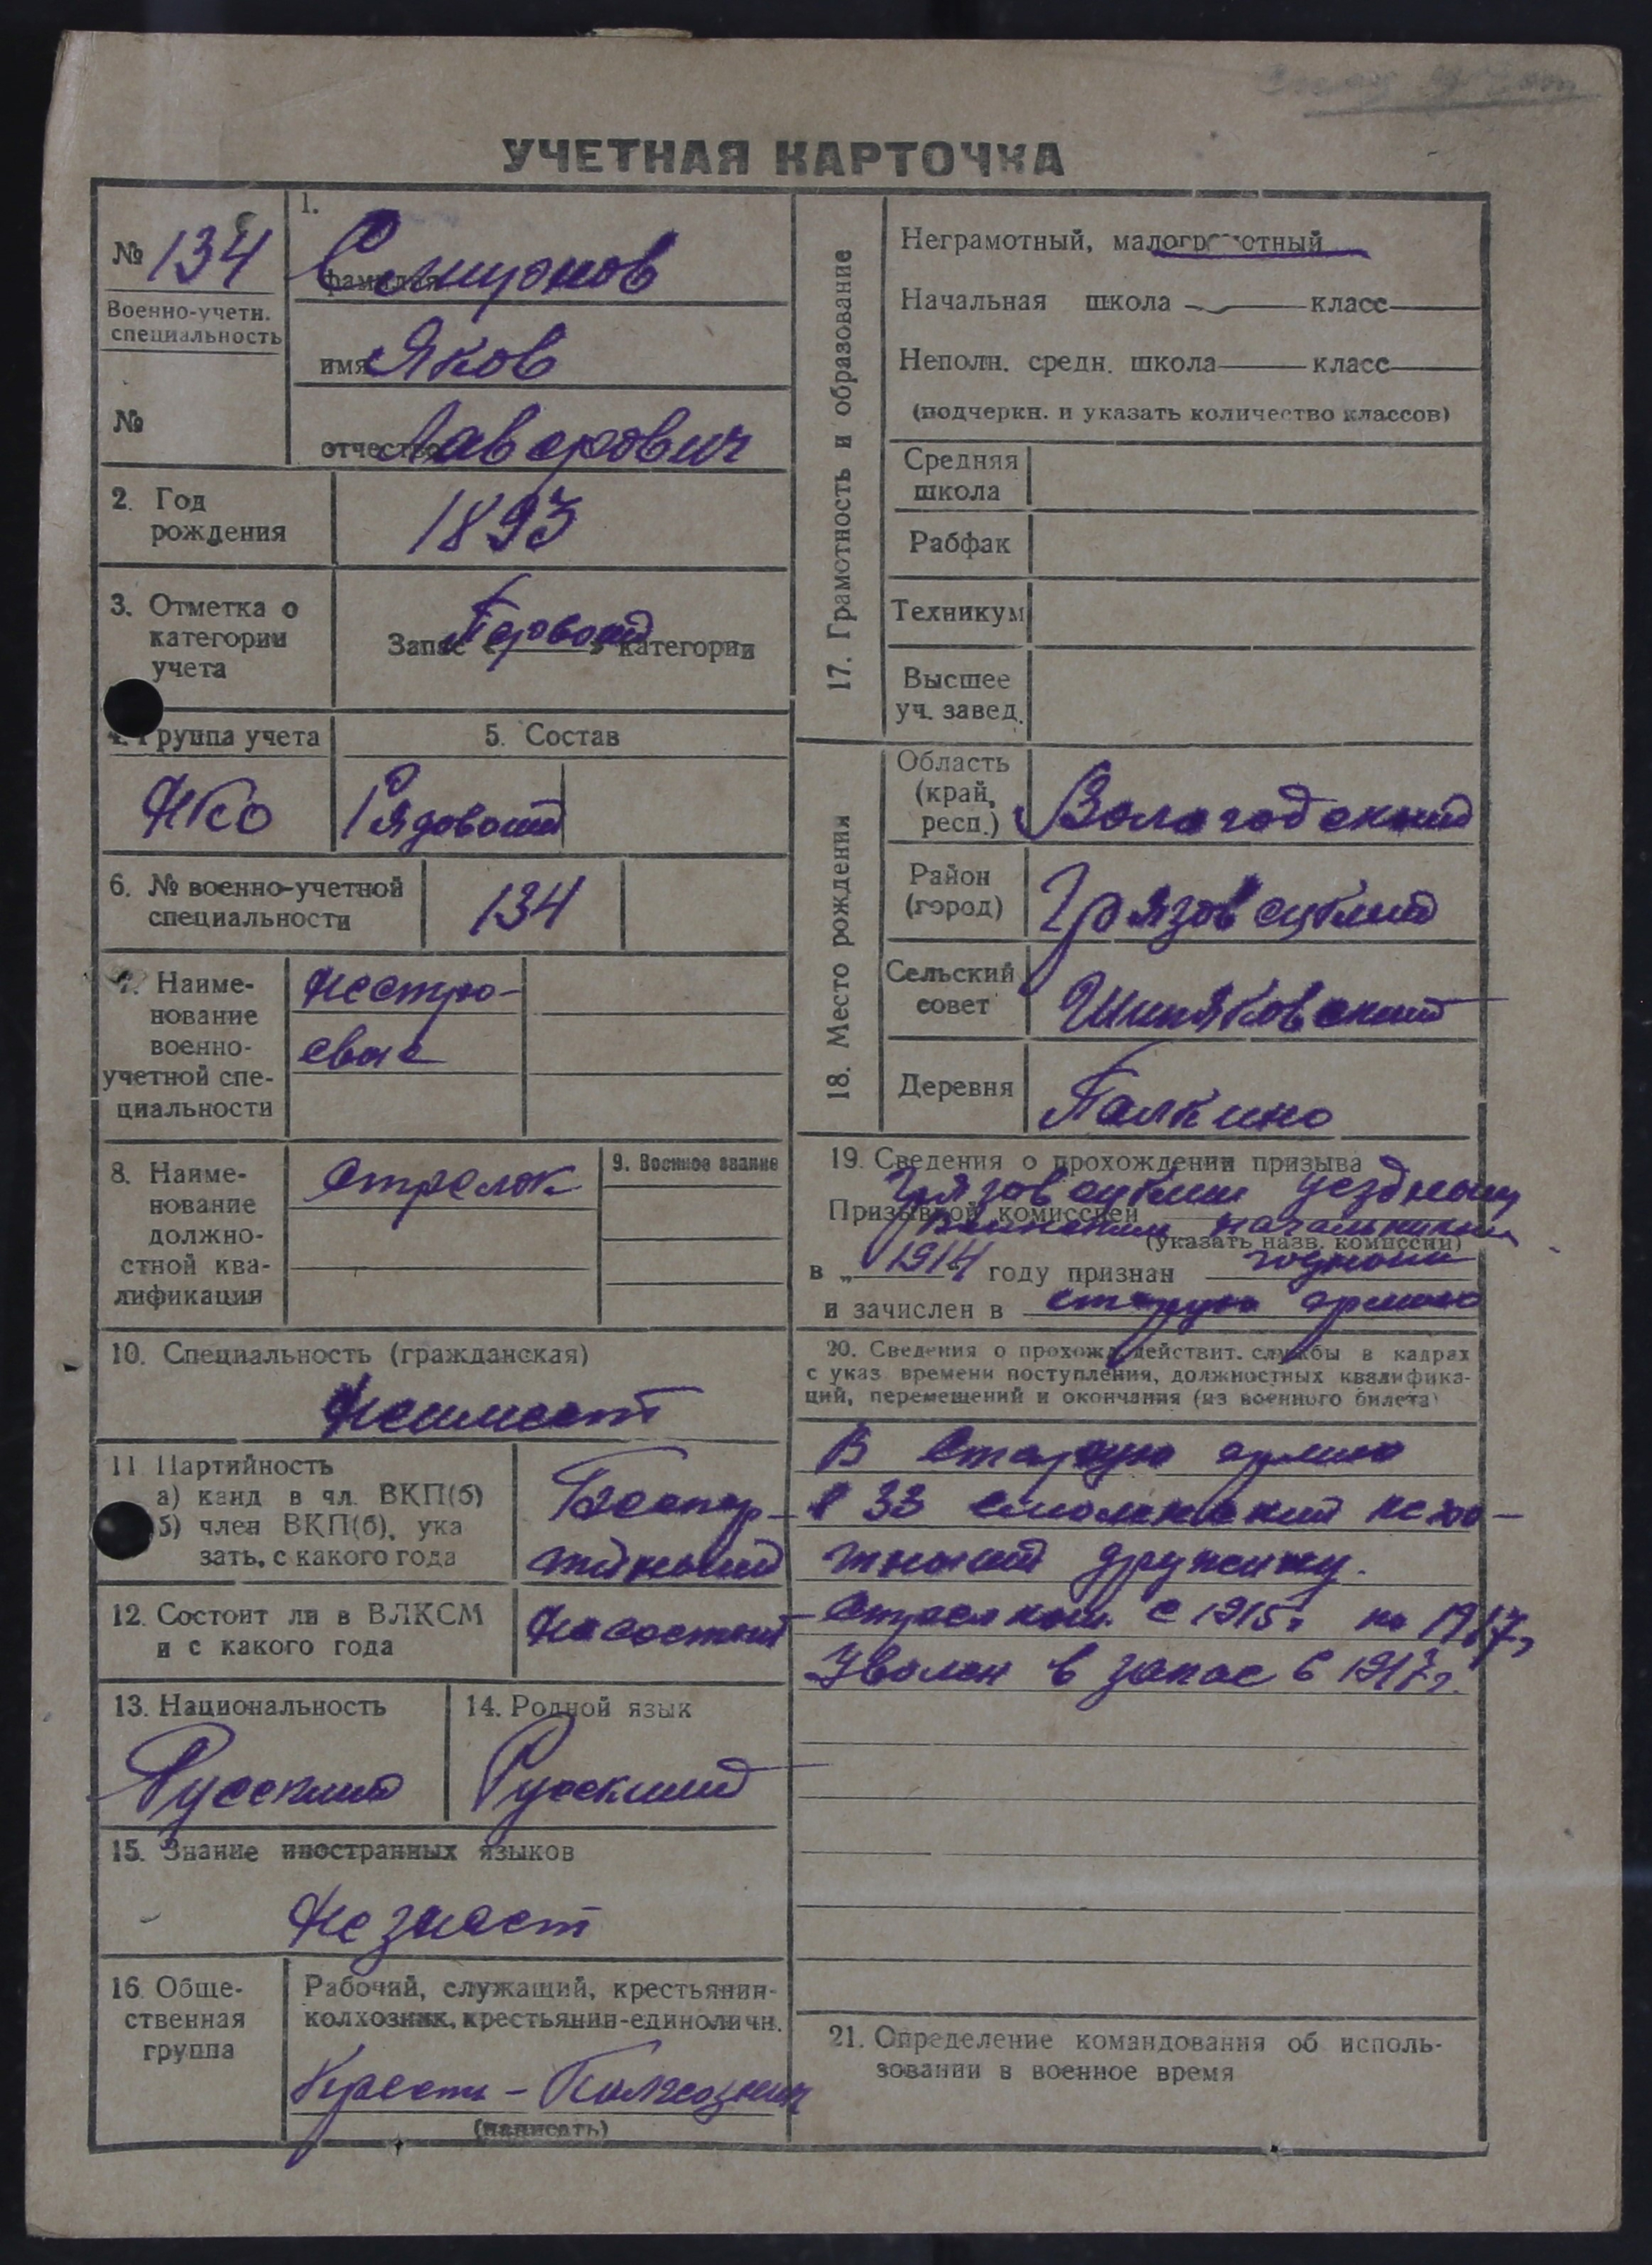 УЧЕТНАЯ КАРТОЧКА
№ 134
Военно-учетн.
специальность
№
1.
фамилия Смирнов
имя Яков
отчество Лаврович
2. Год
рождения
1893
3. Отметка о
категории
учета
Запас Первой категории
4. Группа учета
НКО
5. Состав
Рядовой
6. № военно-учетной
специальности
134
7. Наиме-
нование
военно-
учетной спе-
циальности
Нестро-
евые
8. Наиме-
нование
должно-
стной ква-
лификации
Стрелок
9. Военное звание
10. Специальность (гражданская)
Не имеет
11 Партийность
а) канд в чл. ВКП(б)
б) член ВКП(б), ука
зать, с какого года
Беспар-
тийный
12. Состоит ли в ВЛКСМ
и с какого года
Не состоит
13. Национальность
Русский
14. Родной язык
Русский
15. Знание иностранных языков
Не знает
16. Обще-
ственная
группа
Рабочий, служащий, крестьянин-
колхозник, крестьянин-единоличн.
Крест - Колхозник
(написать)
17. Грамотность и образование
Неграмотный, малограмотный
Начальная школа класс
Неполн. средн. школа класс
(подчеркн. и указать количество классов)
Средняя
школа
Рабфак
Техникум
Высшее
уч. завед.
18. Место рождения
Область
(край,
респ.)
Вологодский
Район
(город)
Грязовецкий
Сельский
совет
Шиляковский
Деревня
Палкино
19. Сведения о прохождении призыва
Грязовецким уездным
Призывной комиссией
воинским начальником
(указать назв. комиссии)
в „ 1914 " году признан годным
и зачислен в старую армию
20. Сведения о прохожд. действит. службы в кадрах
с указ времени поступления, должностных квалифика-
ций, перемещений и окончания (из военного билета)
В старую армию
в 33 смоленский пехо-
тный дружину.
Стрелком с 1915г по 1917г
Уволен в запас в 1917г.
21. Определение командования об исполь-
зовании в военное время